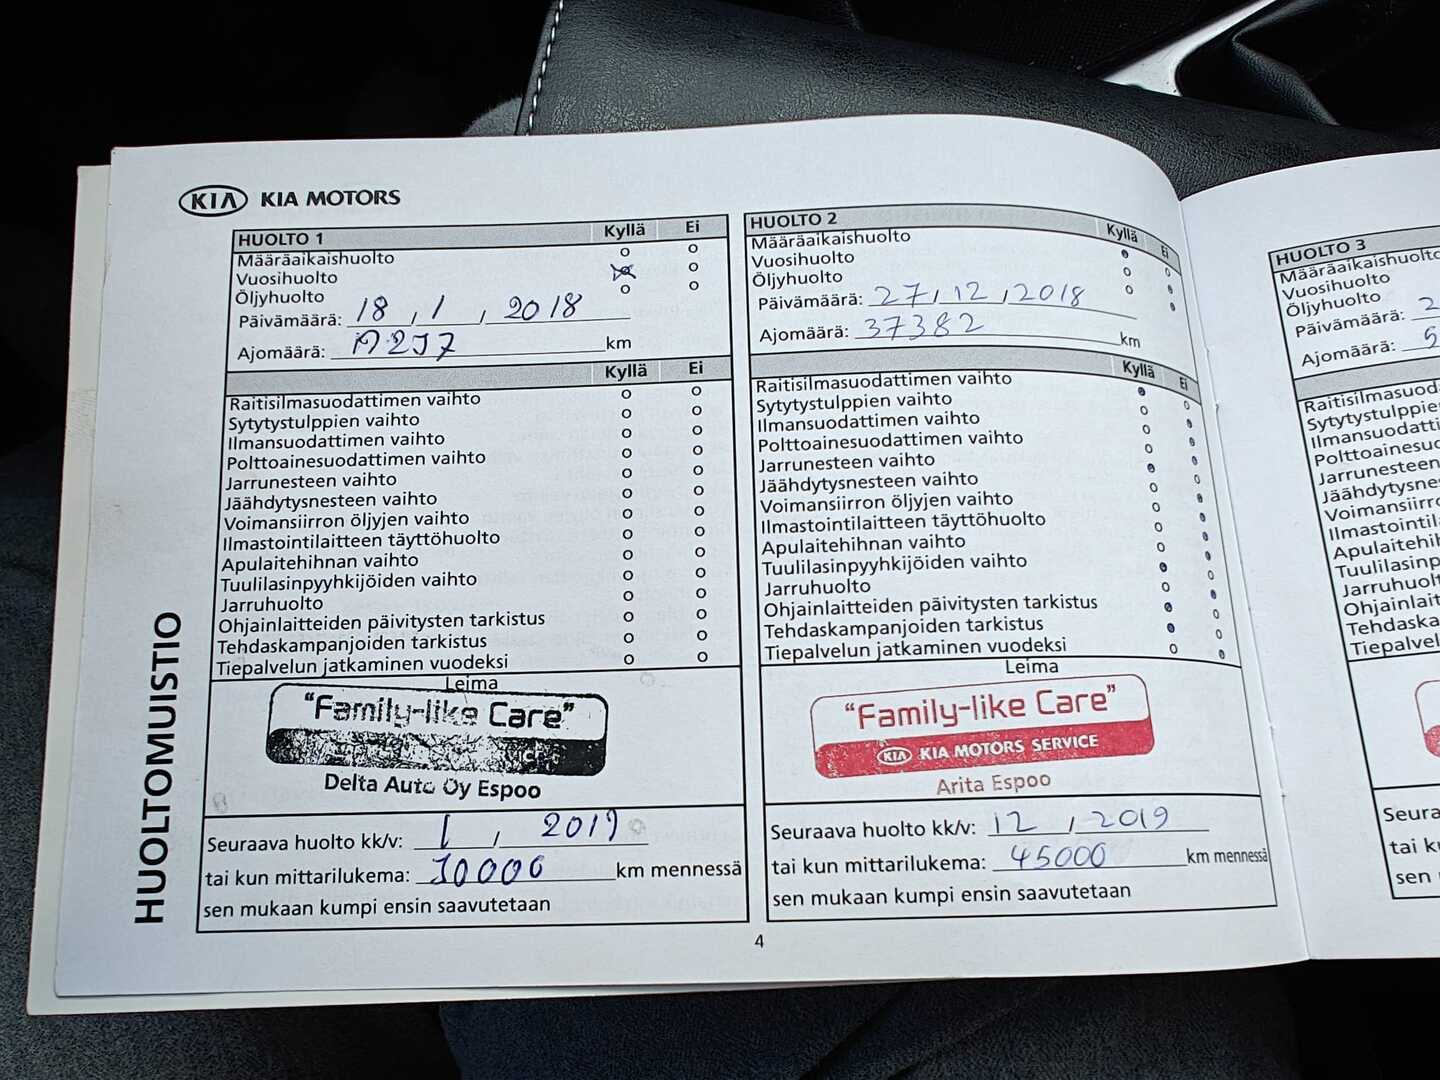 KIA KIA MOTORS
HUOLTOMUISTIO
HUOLTO 1 Kyllä Ei
Määräaikaishuolto o o
Vuosihuolto o
Öljyhuolto o o
Päivämäärä: 18 , 1 , 2018
Ajomäärä: km
Kyllä Ei
Raitisilmasuodattimen vaihto o o
Sytytystulppien vaihto o o
Ilmansuodattimen vaihto o o
Polttoainesuodattimen vaihto o o
Jarrunesteen vaihto o o
Jäähdytysnesteen vaihto o o
Voimansiirron öljyjen vaihto o o
Ilmastointilaitteen täyttöhuolto o o
Apulaitehihnan vaihto o o
Tuulilasinpyyhkijöiden vaihto o o
Jarruhuolto o o
Ohjainlaitteiden päivitysten tarkistus o o
Tehdaskampanjoiden tarkistus o o
Tiepalvelun jatkaminen vuodeksi o o
Leima
"Family-like Care"
Delta Auto Oy Espoo
Seuraava huolto kk/v: 1 , 2019
tai kun mittarilukema: 30000 km mennessä
sen mukaan kumpi ensin saavutetaan
HUOLTO 2 Kyllä Ei
Määräaikaishuolto
Vuosihuolto
Öljyhuolto
Päivämäärä: 27 , 12 , 2018
Ajomäärä: 37382 km
Kyllä Ei
Raitisilmasuodattimen vaihto
Sytytystulppien vaihto
Ilmansuodattimen vaihto
Polttoainesuodattimen vaihto
Jarrunesteen vaihto
Jäähdytysnesteen vaihto
Voimansiirron öljyjen vaihto
Ilmastointilaitteen täyttöhuolto
Apulaitehihnan vaihto
Tuulilasinpyyhkijöiden vaihto
Jarruhuolto
Ohjainlaitteiden päivitysten tarkistus
Tehdaskampanjoiden tarkistus
Tiepalvelun jatkaminen vuodeksi
Leima
"Family-like Care"
KIA KIA MOTORS SERVICE
Arita Espoo
Seuraava huolto kk/v: 12 , 2019
tai kun mittarilukema: 45000 km mennessä
sen mukaan kumpi ensin saavutetaan
4
HUOLTO 3
Määräaikaishuolto
Vuosihuolto
Öljyhuolto
Päivämäärä: 2
Ajomäärä:
Raitisilmasuod
Sytytystulppie
Ilmansuodatti
Polttoainesuod
Jarrunesteen
Jäähdytysnes
Voimansiirro
Ilmastointila
Apulaitehih
Tuulilasinp
Jarruhuolt
Ohjainlait
Tehdaska
Tiepalvel
Seura
tai k
sen